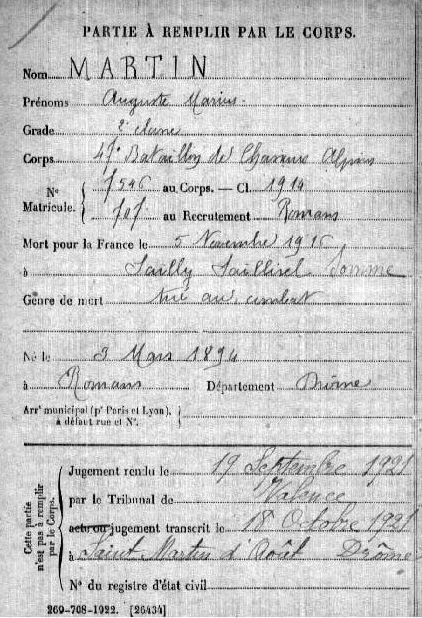 PARTIE À REMPLIR PAR LE CORPS.
Nom MARTIN
Prénoms Auguste Marius
Grade 2e classe
Corps 47e Bataillon de Chasseurs Alpins
No Matricule. 7546 au Corps. — Cl. 1914
707 au Recrutement Romans
Mort pour la France le 5 Novembre 1916
à Sailly Saillisel Somme
Genre de mort tué au combat
Né le 3 Mars 1894
à Romans Département Drôme
Arrt municipal (pr Paris et Lyon),
à défaut rue et No.
Cette partie n'est pas à remplir par le Corps.
Jugement rendu le 19 Septembre 1921
par le Tribunal de Valence
acte ou jugement transcrit le 18 Octobre 1921
à Saint Martin d'Août Drôme
No du registre d'état civil
269-708-1922. [26434]